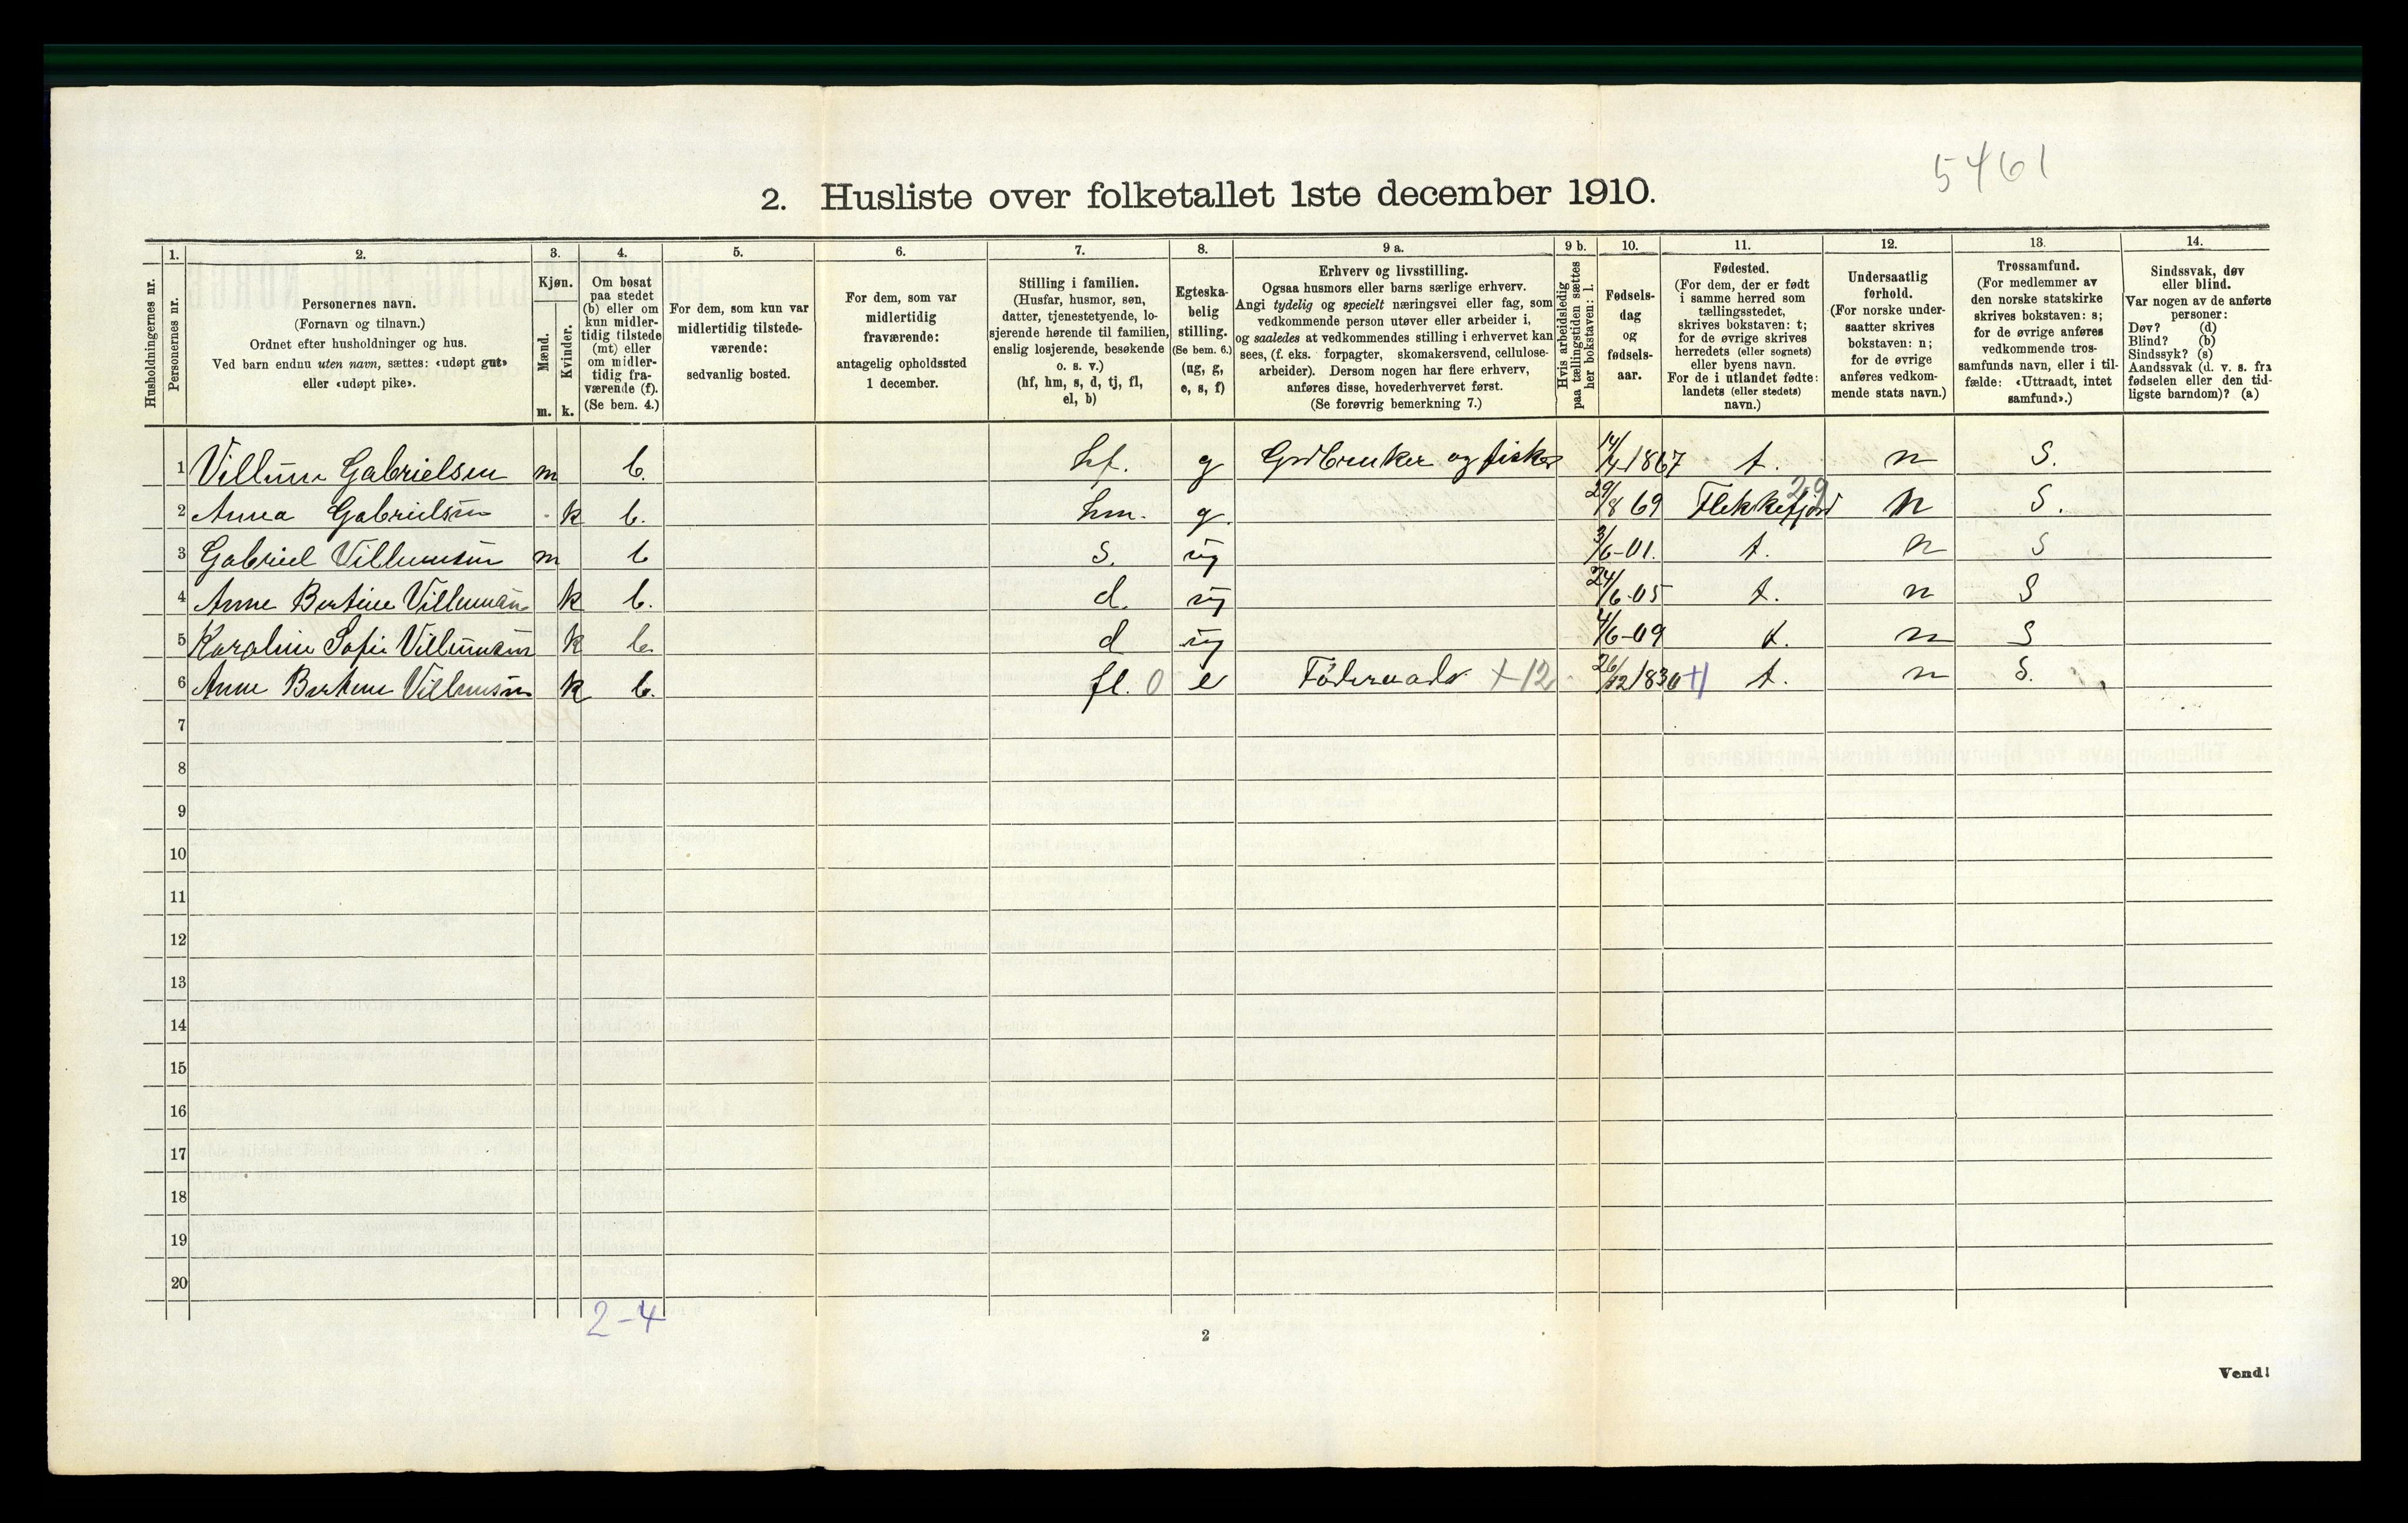 5461
2. Husliste over folketallet 1ste december 1910.
Husholdningernes nr.
1.
Personernes nr.
2.
Personernes navn.
(Fornavn og tilnavn.)
Ordnet efter husholdninger og hus.
Ved barn endnu uten navn, sættes: «udøpt gut»
eller «udøpt pike».
3.
Kjøn.
Mænd.
Kvinder.
m. k.
4.
Om bosat
paa stedet
(b) eller om
kun midler-
tidig tilstede
(mt) eller
om midler-
tidig fra-
værende (f).
(Se bem. 4.)
5.
For dem, som kun var
midlertidig tilstede-
værende:
sedvanlig bosted.
6.
For dem, som var
midlertidig
fraværende:
antagelig opholdssted
1 december.
7.
Stilling i familien.
(Husfar, husmor, søn,
datter, tjenestetyende, lo-
sjerende hørende til familien,
enslig losjerende, besøkende
o. s. v.)
(hf, hm, s, d, tj, fl,
el, b)
8.
Egteska-
belig
stilling.
(Se bem. 6.)
(ug, g,
e, s, f)
9 a.
Erhverv og livsstilling.
Ogsaa husmors eller barns særlige erhverv.
Angi tydelig og specielt næringsvei eller fag, som
vedkommende person utøver eller arbeider i,
og saaledes at vedkommendes stilling i erhvervet kan
sees, (f. eks. forpagter, skomakersvend, cellulose-
arbeider). Dersom nogen har flere erhverv,
anføres disse, hovederhvervet først.
(Se forøvrig bemerkning 7.)
9 b.
Hvis arbeidsledig
paa tællingstiden sættes
her bokstaven: l.
10.
Fødsels-
dag
og
fødsels-
aar.
11.
Fødested.
(For dem, der er født
i samme herred som
tællingsstedet,
skrives bokstaven: t;
for de øvrige skrives
herredets (eller sognets)
eller byens navn.
For de i utlandet fødte:
landets (eller stedets)
navn.)
12.
Undersaatlig
forhold.
(For norske under-
saatter skrives
bokstaven: n;
for de øvrige
anføres vedkom-
mende stats navn.)
13.
Trossamfund.
(For medlemmer av
den norske statskirke
skrives bokstaven: s;
for de øvrige anføres
vedkommende tros-
samfunds navn, eller i til-
fælde: «Uttraadt, intet
samfund».)
14.
Sindssvak, døv
eller blind.
Var nogen av de anførte
personer:
Døv? (d)
Blind? (b)
Sindssyk? (s)
Aandssvak (d. v. s. fra
fødselen eller den tid-
ligste barndom)? (a)
1 Villum Gabrielsen m b. hf. g Grdbruker og fisker 14/4 1867 t. n S.
2 Anna Gabrielsen - k b. hm. g. 29/8 69 Flekkefjord 29 n S.
3 Gabriel Villumsen m b s. ug 3/6-01. t. n S
4 Anne Bertine Villumsen k b. d. ug 24/6-05 t. n S
5 Karoline Sofie Villumsen k b. d ug 4/6-09 t. n S
6 Anne Bertine Villumsen k b. fl. 0 e Føderaads +12 26/12 1830 t. n S.
7
8
9
10
11
12
13
14
15
16
17
18
19
20
2-4
2
Vend!